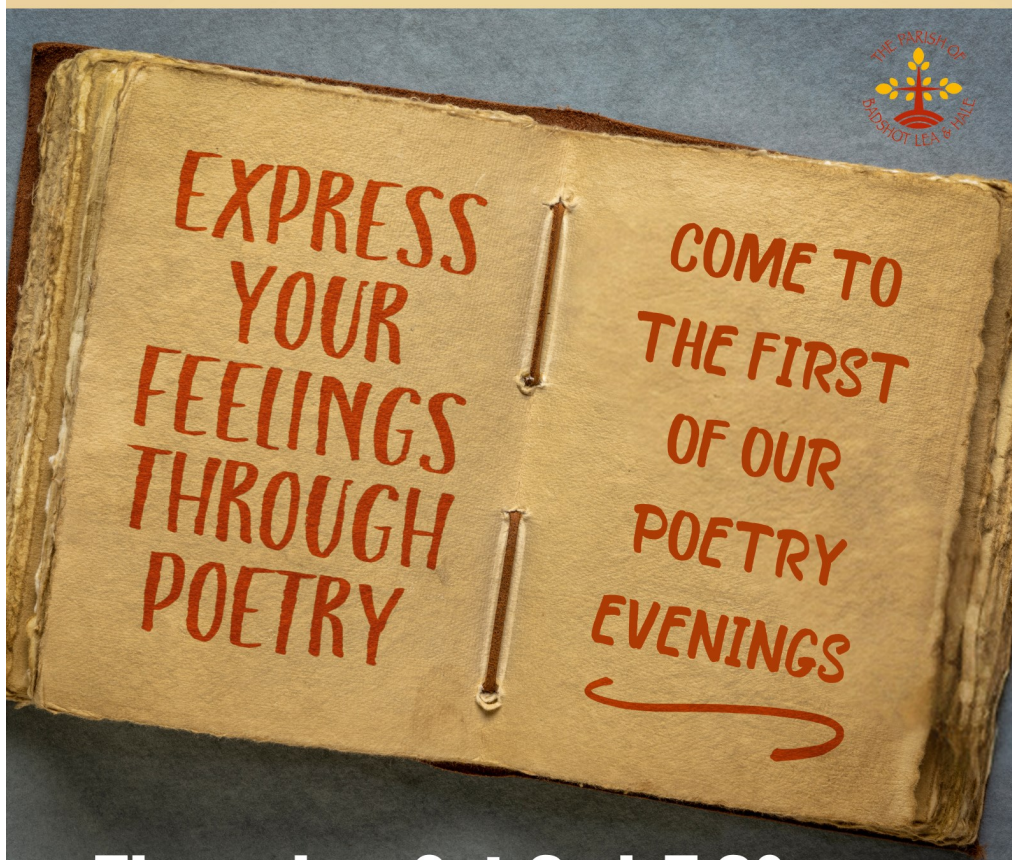 THE PARISH OF
BADSHOT LEA & HALE
EXPRESS
YOUR
FEELINGS
THROUGH
POETRY
COME TO
THE FIRST
OF OUR
POETRY
EVENINGS